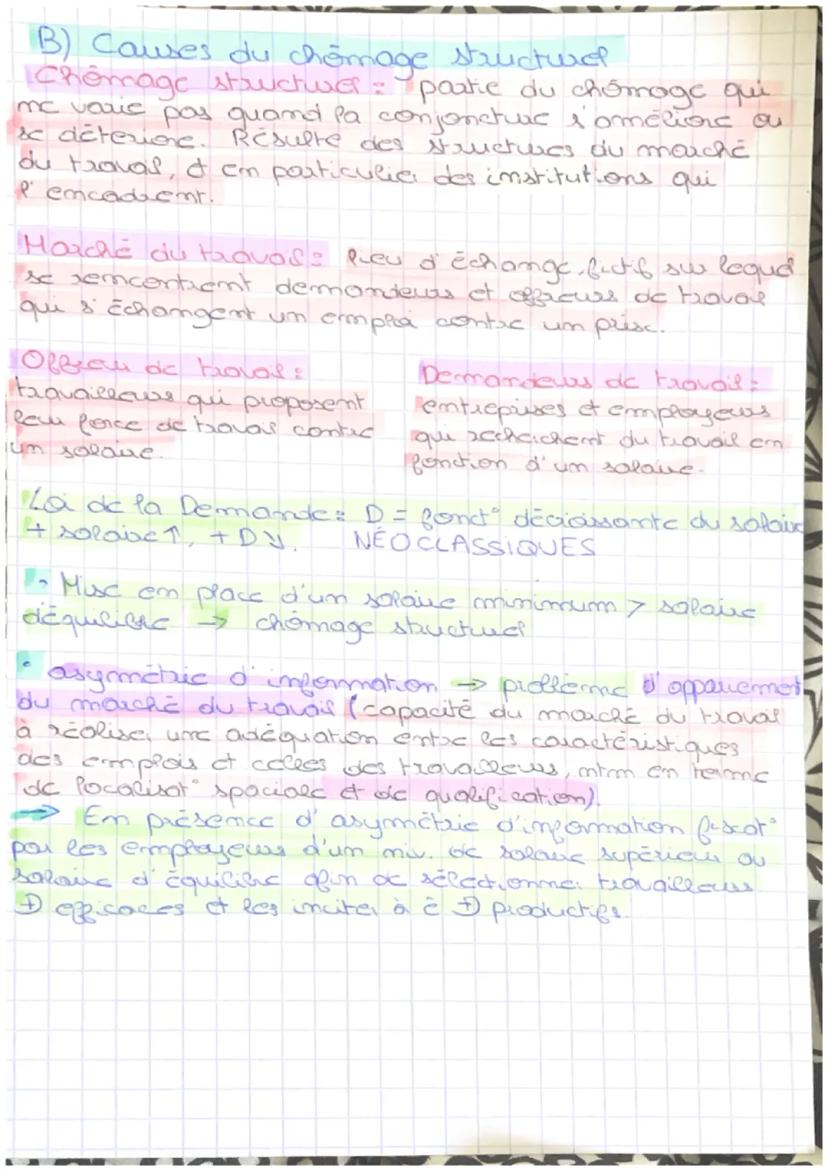 B) Causes du chômage structurel
Chômage structurel : partie du chômage qui
ne varie pas quand la conjoncture s'améliore ou
se détériore. Résulte des structures du marché
du travail, et en particulier des institutions qui
l'encadrent.
Marché du travail : lieu d'échange fictif sur lequel
se rencontrent demandeurs et offreurs de travail
qui s'échangent un emploi contre un prix.
Offreur de travail :
travailleurs qui proposent
leur force de travail contre
un salaire.
Demandeurs de travail :
entreprises et employeurs
qui recherchent du travail en
fonction d'un salaire.
Loi de la Demande : D = fonct° décroissante du salaire
+ salaire ↑, + D ↘. NÉOCLASSIQUES
• Mise en place d'un salaire minimum > salaire
d'équilibre → chômage structurel
• asymétrie d'information → problème d'appariement
du marché du travail (capacité du marché du travail
à réaliser une adéquation entre les caractéristiques
des emplois et celles des travailleurs, ntm en terme
de localisat° spaciale et de qualification).
→ En présence d'asymétrie d'information fixat°
par les employeurs d'un niv. de salaire supérieur au
salaire d'équilibre afin de sélectionner travailleurs
⊕ efficaces et les inciter à ê ⊕ productifs.